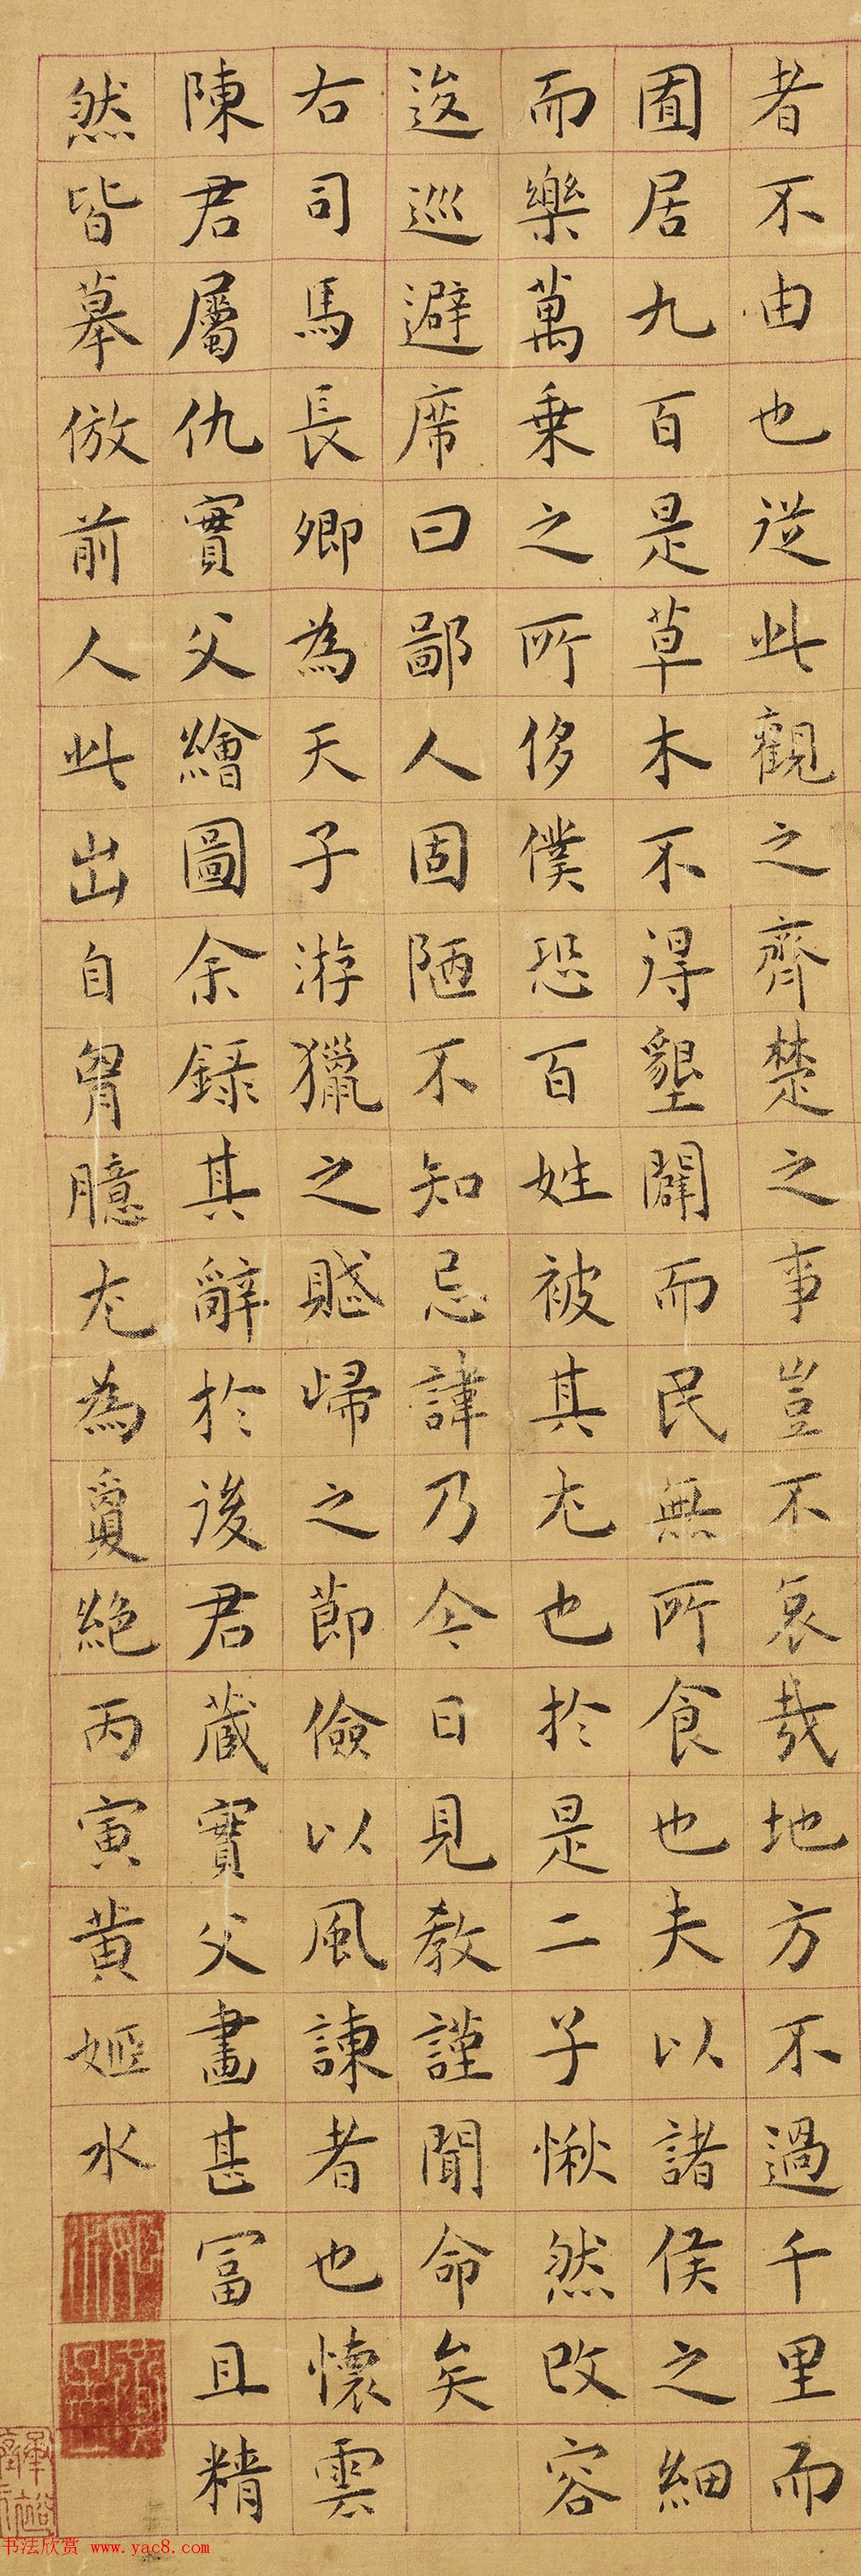 者不由也從此觀之齊楚之事豈不哀哉地方不過千里而
囿居九百是草木不得墾闢而民無所食也夫以諸侯之細
而樂萬乘之所侈僕恐百姓被其尤也於是二子愀然改容
逡巡避席曰鄙人固陋不知忌諱乃今日見教謹聞命矣
右司馬長卿為天子游獵之賦歸之節儉以風諫者也懷雲
陳君屬仇實父繪圖余錄其辭於後君藏實父畫甚富且精
然皆摹倣前人此出自胷臆尤為敻絕丙寅黃姬水
书法欣赏 www.yac8.com